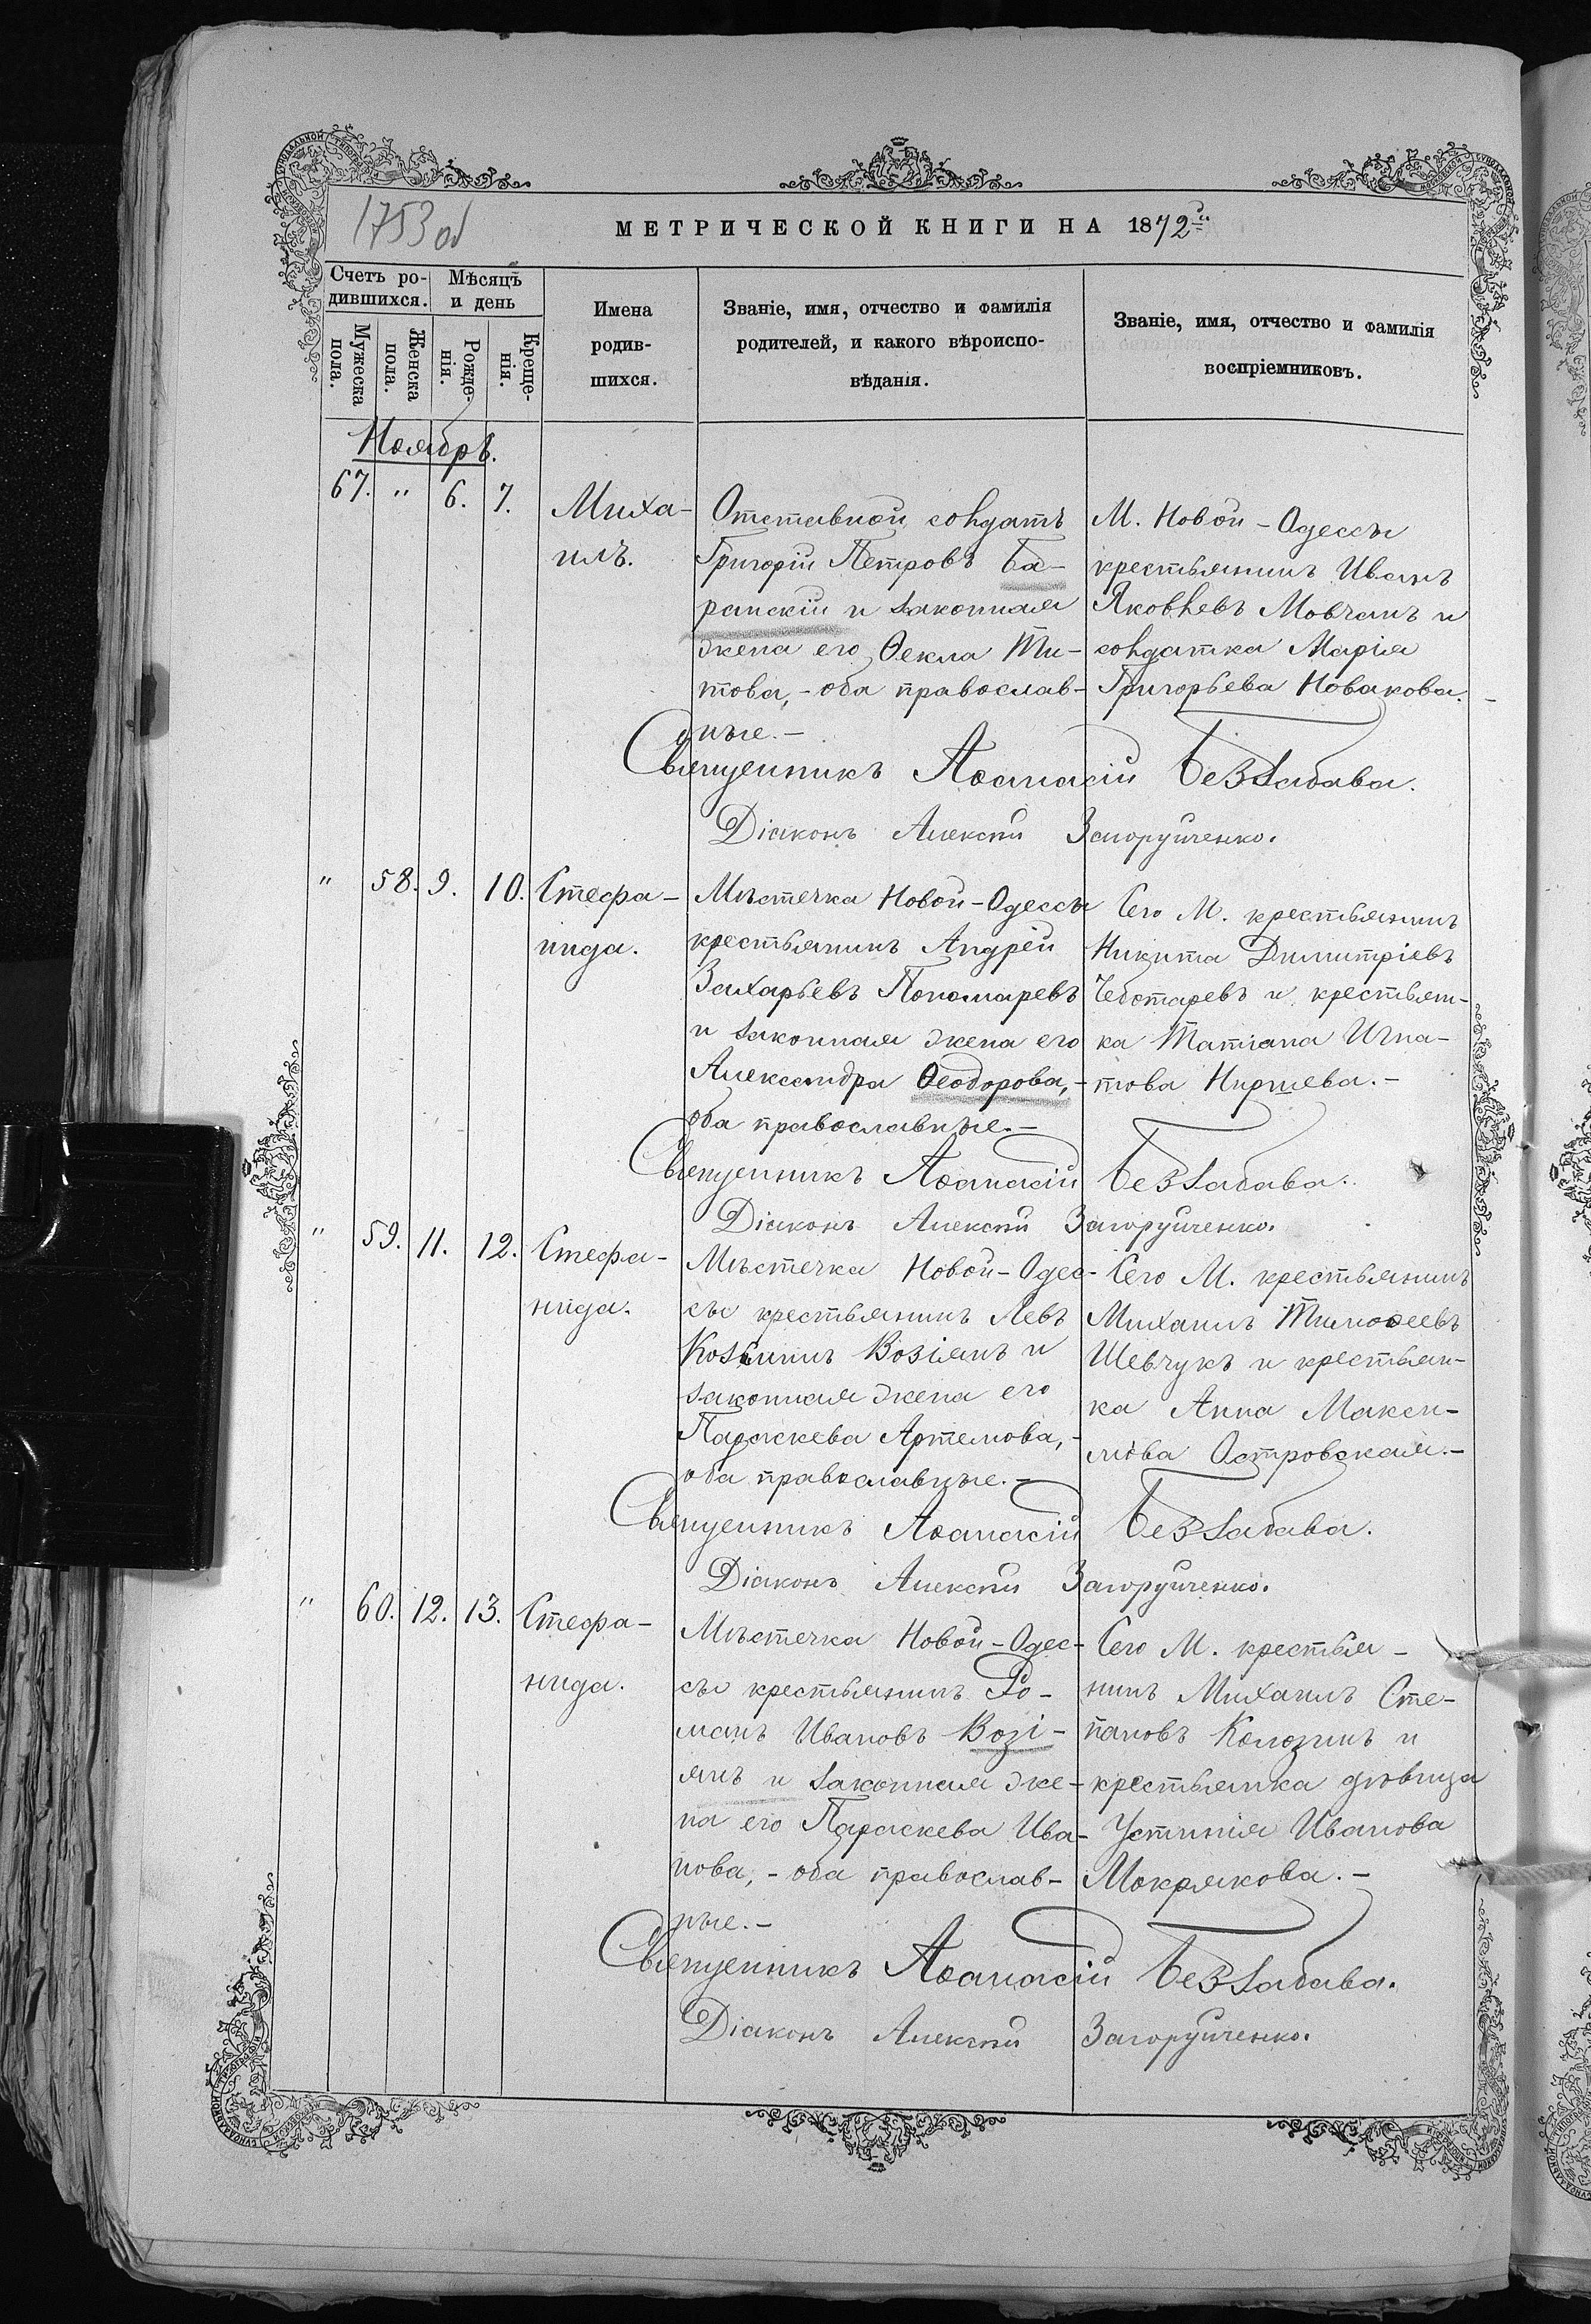 1753 об
МЕТРИЧЕСКОЙ КНИГИ НА 1872й
Счетъ ро-
дившихся.
Мужеска
пола.
Женска
пола.
Мѣсяцъ
и день
Рожде-
нія.
Креще-
нія.
Имена
родив-
шихся.
Званіе, имя, отчество и фамилія
родителей, и какого вѣроиспо-
вѣданія.
Званіе, имя, отчество и фамилія
воспріемниковъ.
Ноябрь.
67. " 6. 7.
Миха-
илъ.
Отставной солдатъ
Григорій Петровъ Ба-
ранскій и законная
жена его Ѳекла Ти-
това, - оба православ-
ные. -
М. Новой - Одессы
крестьянинъ Иванъ
Яковлевъ Мовчанъ и
солдатка Марія
Григорьева Новакова. -
Священникъ Аѳанасій Беззабава.
Діаконъ Алексѣй Загоруйченко.
" 58. 9. 10.
Стефа-
нида.
Мѣстечка Новой - Одессы
крестьянинъ Андрей
Захарьевъ Пономаревъ
и законная жена его
Александра Ѳеодорова, -
оба православные. -
Сего М. крестьянинъ
Никита Димитріевъ
Чеботаревъ и крестьян-
ка Татіана Игна-
това Ниршева. -
Священникъ Аѳанасій Беззабава.
Діаконъ Алексѣй Загоруйченко.
" 59. 11. 12.
Стефа-
нида.
Мѣстечка Новой - Одес-
сы крестьянинъ Левъ
Козьминъ Возіянъ и
законная жена его
Параскева Артемова, -
оба православные. -
Сего М. крестьянинъ
Михаилъ Тимоѳеевъ
Шевчукъ и крестьян-
ка Анна Макси-
мова Островская. -
Священникъ Аѳанасій Беззабава.
Діаконъ Алексѣй Загоруйченко.
" 60. 12. 13.
Стефа-
нида.
Мѣстечка Новой - Одес-
сы крестьянинъ Ро-
манъ Ивановъ Возі-
янъ и законная же-
на его Параскева Ива-
нова, - оба православ-
ные. -
Сего М. крестья-
нинъ Михаилъ Сте-
пановъ Колозинъ и
крестьянка дѣвица
Устинія Иванова
Мокрякова. -
Священникъ Аѳанасій Беззабава.
Діаконъ Алексѣй Загоруйченко.